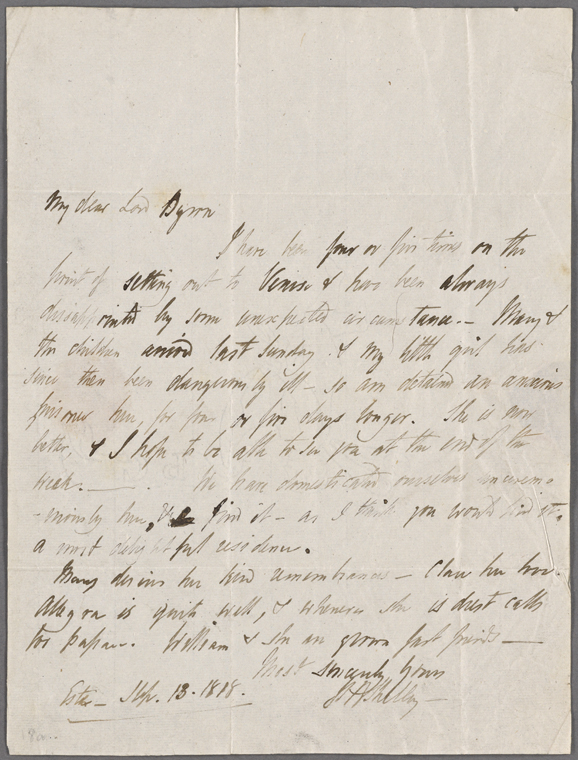 My dear Lord Byron
I have been four or five times on the
point of setting out to Venice & have been always
disappointed by some unexpected circumstance. — Mary &
the children arrived last Sunday. & my little girl has
since then been dangerously ill — so am detained an anxious
prisoner here, for four or five days longer. She is now
better, & I hope to be able to see you at the end of the
week. — . We have domesticated ourselves uncerem-
-moniously here, & find it — as I think you would find it,
a most delightful residence.
Mary desires her kind remembrances — Clare her love.
Allegra is quite well, & whenever she is drest calls
for Papa. William & she are grown fast friends —
Most sincerely yours
Este — Sep. 13. 1818. PBShelley —